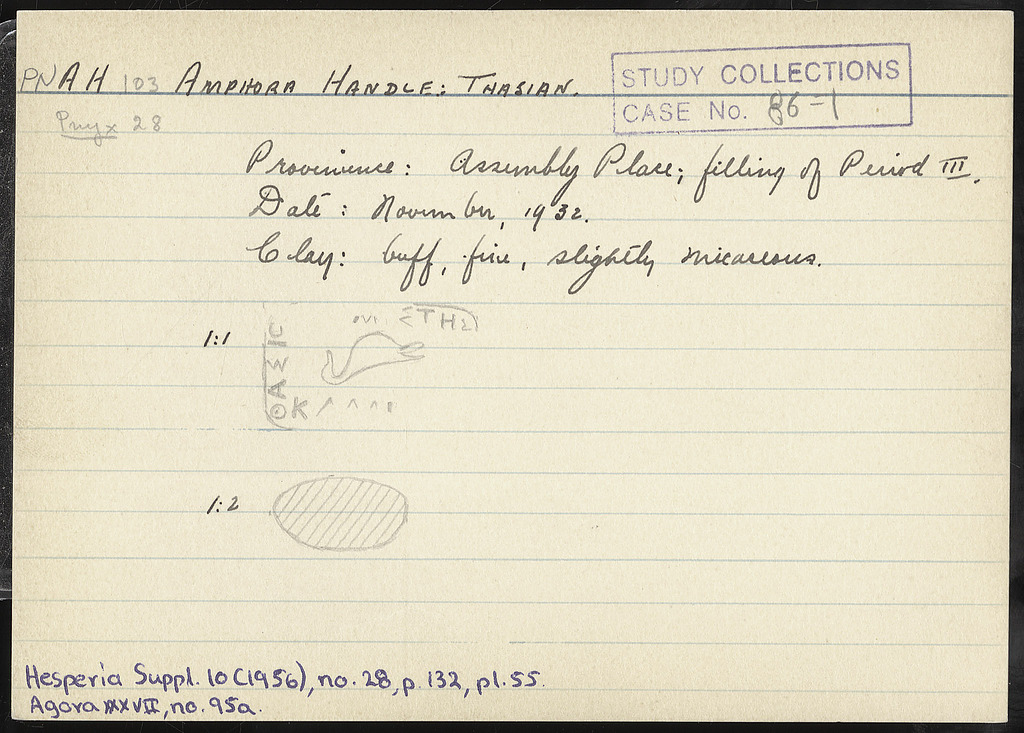 PNAH 103 AMPHORA HANDLE: THASIAN.
STUDY COLLECTIONS
CASE No. 86-1
Pnyx 28
Provenience: Assembly Place; filling of Period III.
Date: November, 1932.
Clay: buff, fine, slightly micaceous.
1:1
ΕΤΗΣ
ΘΑΣΙΟ
Κ
1:2
Hesperia Suppl. 10 (1956), no. 28, p. 132, pl. 55.
no. 95a.